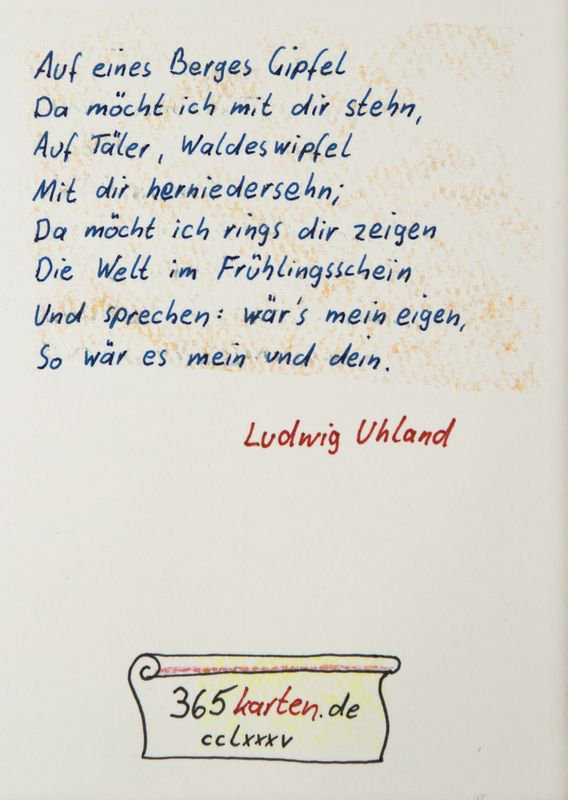 Auf eines Berges Gipfel
Da möcht ich mit dir stehn,
Auf Täler, Waldeswipfel
Mit dir herniedersehn;
Da möcht ich rings dir zeigen
Die Welt im Frühlingsschein
Und sprechen: wär's mein eigen,
So wär es mein und dein.
Ludwig Uhland
365karten.de
cclxxxv